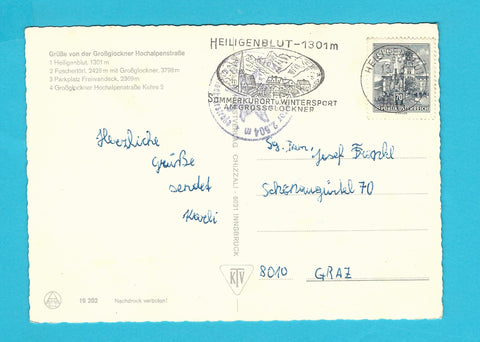 Grüße von der Großglockner Hochalpenstraße
1 Heiligenblut, 1301 m
2 Fuschertörl, 2428 m mit Großglockner, 3798m
3 Parkplatz Freiwandeck, 2369m
4 Großglockner Hochalpenstraße Kehre 2
HEILIGENBLUT - 1301 m
SOMMERKURORT u. WINTERSPORT
AM GROSSGLOCKNER
2.504 m
Herzliche
Grüße
sendet
Karli
Josef
70
8010 GRAZ
GHIZZALI · 6031 INNSBRUCK
KTV
19 202 Nachdruck verboten!